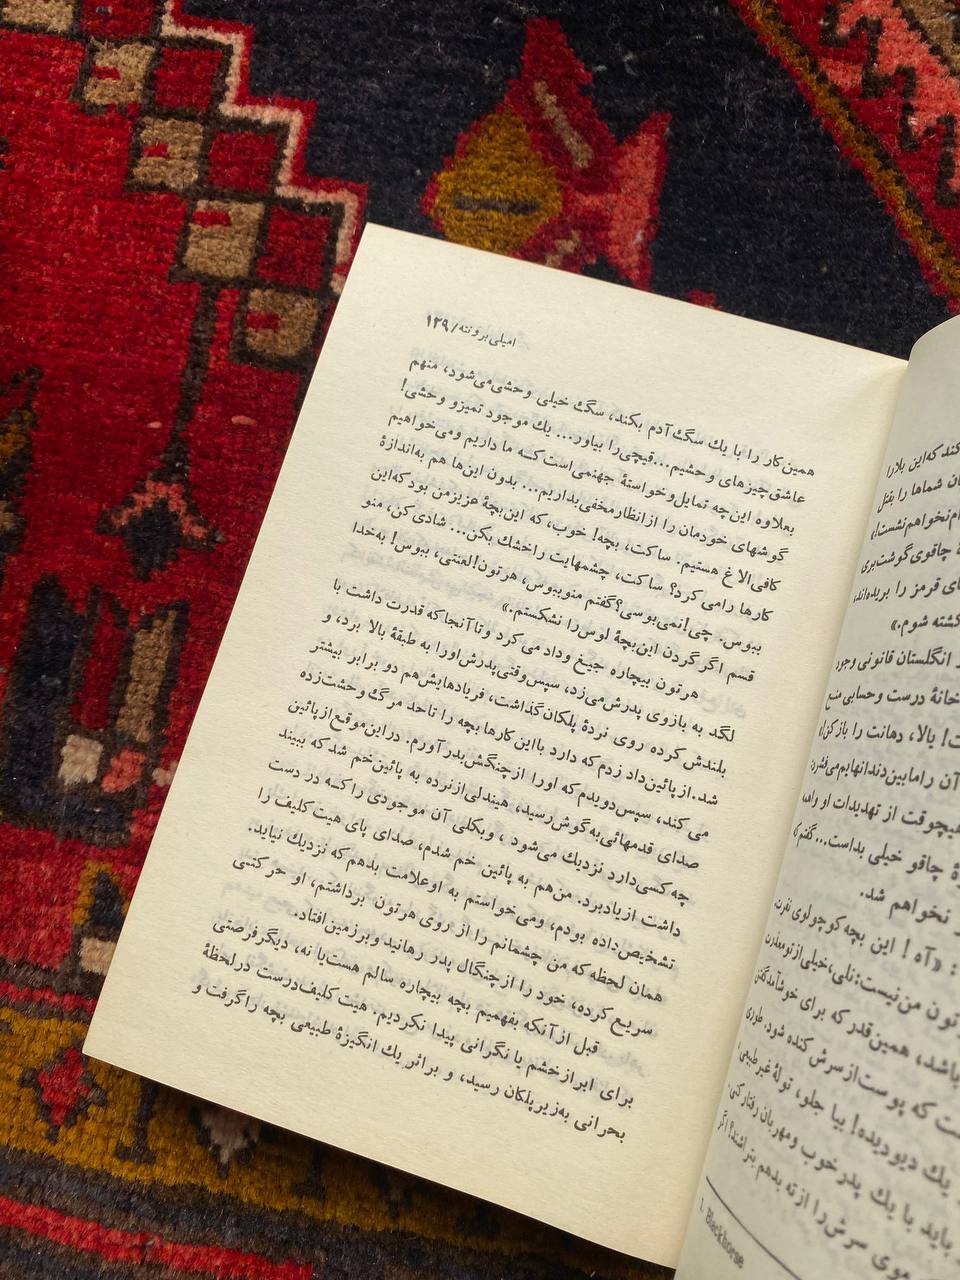 امیلی برونته/۱۳۹
همین کار را با یك سگ آدم بکند، سگ خیلی وحشی می‌شود، منهم
عاشق چیزهای وحشیم...قیچی را بیاور... یك موجود تمیز و وحشی!
بعلاوه این چه تمایل و خواستهٔ جهنمی است که ما داریم و می‌خواهیم
گوشهای خودمان را از انظار مخفی بداریم... بدون این‌ها هم به‌اندازهٔ
کافی الاغ هستیم. ساکت، بچه! خوب، که این بچهٔ عزیز من بود که این
کارها را می کرد؟ ساکت، چشمهایت را خشك بکن... شادی کن، منو
ببوس. چی! نمی‌بوسی؟ گفتم منو ببوس، هرتون! لعنتی، ببوس! به‌خدا
قسم اگر گردن این بچهٔ لوس را نشکستم.»
هرتون بیچاره جیغ و داد می کرد و تا آنجا که قدرت داشت با
لگد به بازوی پدرش می‌زد، سپس وقتی پدرش او را به طبقهٔ بالا برد، و
بلندش کرده روی نردهٔ پلکان گذاشت، فریادهایش هم دو برابر بیشتر
شد. از پائین داد زدم که دارد با این کارها بچه را تا حد مرگ وحشت‌زده
می کند، سپس دویدم که او را از چنگش بدر آورم. در این موقع از پائین
صدای قدمهائی به گوش رسید، هیندلی از نرده به پائین خم شد که ببیند
چه کسی دارد نزدیك می‌شود ، و بکلی آن موجودی را که در دست
داشت از یاد برد. من هم به پائین خم شدم، صدای پای هیت کلیف را
تشخیص داده بودم، و می‌خواستم به او علامت بدهم که نزدیك نیاید.
همان لحظه که من چشمانم را از روی هرتون برداشتم، او حرکتی
سریع کرده، خود را از چنگال پدر رهانید و بر زمین افتاد.
قبل از آنکه بفهمیم بچه بیچاره سالم هست یا نه، دیگر فرصتی
برای ابراز خشم یا نگرانی پیدا نکردیم. هیت کلیف درست در لحظهٔ
بحرانی به‌زیر پلکان رسید، و بر اثر یك انگیزهٔ طبیعی بچه را گرفت و
کند که این بلا را
شماها را بقتل
چاقوی گوشت‌بری
قرمز را بریده‌اند،
کشته شوم.»
انگلستان قانونی وجود
خانهٔ درست وحسابی منع
بالا، دهانت را باز کن!»
آن را مابین دندانهایم می‌فشرد،
هیچوقت از تهدیدات او
چاقو خیلی بد است... گفتم که
نخواهم شد.
: «آه ! این بچه کوچولوی
من نیست: نلی، خیلی از تو معذرت
باشد، همین قدر که برای خوشآمد گفتن
که پوست از سرش کنده شود. طوری
یك دیو دیده! بیا جلو، تولهٔ غیر طبیعی،
باید با یك پدر خوب و مهربان رفتار کنی.
موی سرش را از ته بدهم بتراشند؟ اگر
1. Blackhorse